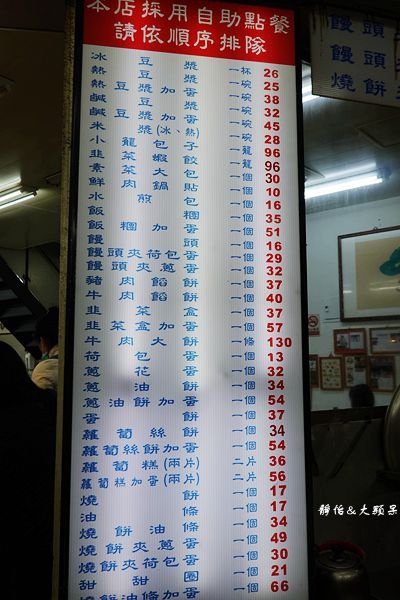 本店採用自助點餐
請依順序排隊
冰豆漿 一杯 26
熱豆漿 一碗 25
熱豆漿加蛋 一碗 38
鹹豆漿 一碗 32
鹹豆漿加蛋 一碗 45
米漿(冰、熱) 一碗 28
小籠包子 一籠 96
韭菜蝦餃 一籠 96
素菜大包 一個 30
鮮肉鍋貼 一個 10
水煎包 一個 16
飯糰 一個 35
飯糰加蛋 一個 51
饅頭 一個 16
饅頭夾荷包蛋 一個 29
饅頭夾蔥蛋 一個 32
豬肉餡餅 一個 37
牛肉餡餅 一個 40
韭菜盒 一個 37
韭菜盒加蛋 一個 57
牛肉大餅 一條 130
荷包蛋 一個 13
蔥花蛋 一個 32
蔥油餅 一個 34
蔥油餅加蛋 一個 54
蛋餅 一個 37
蘿蔔絲餅 一個 34
蘿蔔絲餅加蛋 一個 54
蘿蔔糕(兩片) 二片 36
蘿蔔糕加蛋(兩片) 二片 56
燒餅 一個 17
油條 一個 17
燒餅油條 一個 34
燒餅夾蔥蛋 一個 49
燒餅夾荷包蛋 一個 30
甜甜圈 一個 21
燒餅油條加蛋 一個 66
饅頭
饅頭
燒餅
靜怡&大顆呆